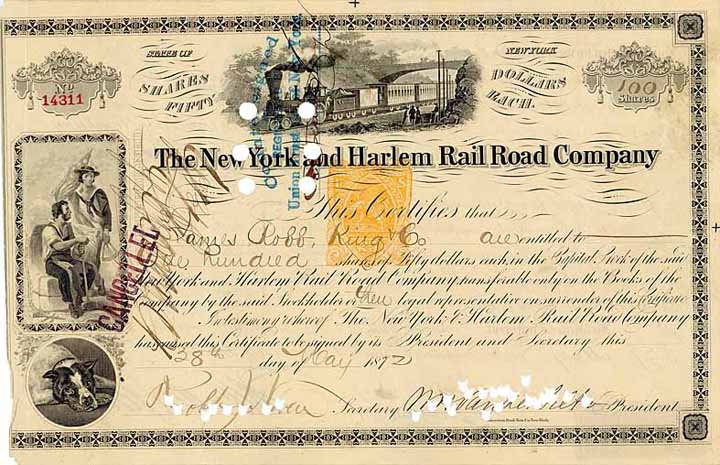 STATE OF
NEW YORK
SHARES
FIFTY
DOLLARS
EACH.
No
14311
100
Shares
Union Trust
The New York and Harlem Rail Road Company
This Certifies that
James Robb, King & Co. are entitled to
One Hundred shares of Fifty dollars each in the Capital Stock of the said
New York and Harlem Rail Road Company, transferable only on the Books of the
Company by the said Stockholder or their legal representative on surrender of this Certificate
In testimony whereof The New York & Harlem Rail Road Company
has caused this Certificate to be signed by its President and Secretary this
28th day of May 1872
Secretary
President
CANCELLED